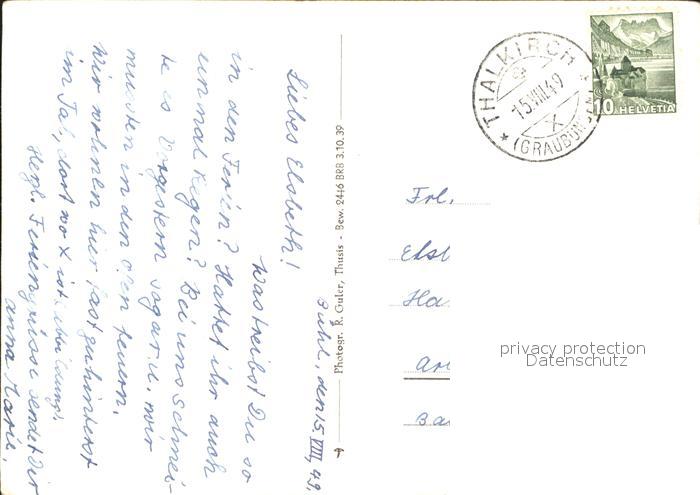 Bühl, den 15. VIII. 49.
Liebes Elsbeth!
Was treibst Du so
in den Ferien? Hattet ihr auch
einmal Regen? Bei uns schnei-
te es Vorgestern sogar u. wir
mussten in den Ofen feuern.
Wir wohnen hier fast zuhinterst
im Tal, dort wo X ist
Herzl. Feriengrüsse sendet Dir
Anna Marie.
Photogr. R. Guler, Thusis - Bew. 2446 BRB 3.10.39
THALKIRCH
15.VIII.49
X
(GRAUBÜNDEN)
10 HELVETIA
Frl.
Elsb
Ha
Ba
privacy protection
Datenschutz